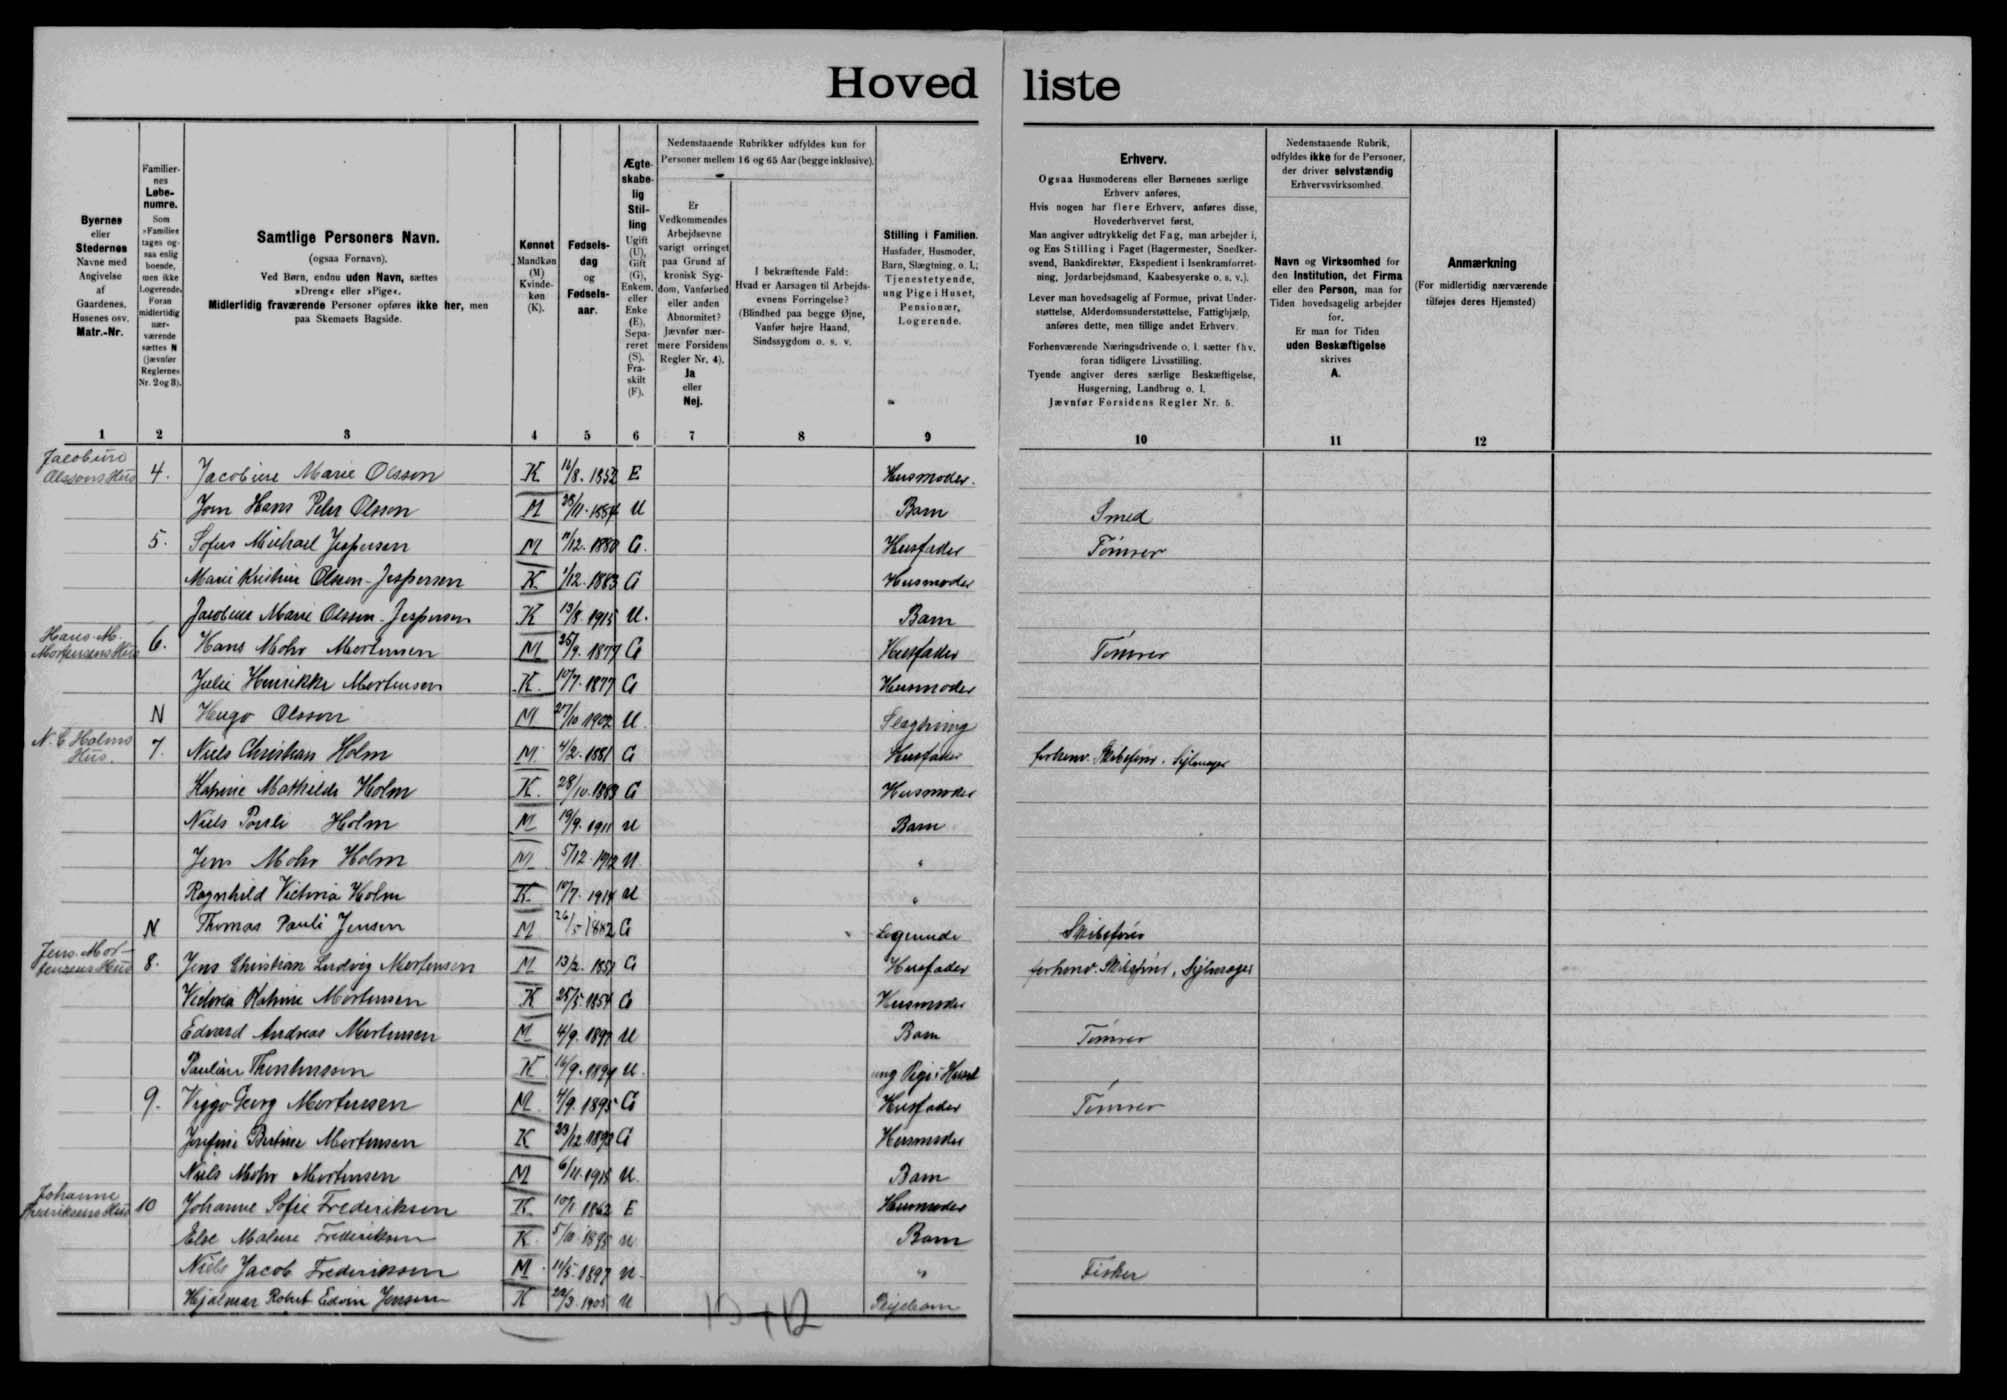 Hovedliste
Byernes
eller
Stedernes
Navne med
Angivelse
af
Gaardenes,
Husenes osv.
Matr.-Nr.
Familier-
nes
Løbe-
numre.
Som
»Familie«
tages og-
saa enlig
boende,
men ikke
Logerende.
Foran
midlertidig
nær-
værende
sættes N
(jævnfør
Reglernes
Nr. 2 og 3).
Samtlige Personers Navn.
(ogsaa Fornavn).
Ved Børn, endnu uden Navn, sættes
»Dreng« eller »Pige«.
Midlertidig fraværende Personer opføres ikke her, men
paa Skemaets Bagside.
Kønnet
Mandkøn
(M)
Kvinde-
køn
(K).
Fødsels-
dag
og
Fødsels-
aar.
Ægte-
skabe-
lig
Stil-
ling
Ugift
(U),
Gift
(G),
Enkem.
eller
Enke
(E),
Sepa-
reret
(S),
Fra-
skilt
(F).
Nedenstaaende Rubrikker udfyldes kun for
Personer mellem 16 og 65 Aar (begge inklusive).
Er
Vedkommendes
Arbejdsevne
varigt forringet
paa Grund af
kronisk Syg-
dom, Vanførhed
eller anden
Abnormitet?
Jævnfør nær-
mere Forsidens
Regler Nr. 4).
Ja
eller
Nej.
I bekræftende Fald:
Hvad er Aarsagen til Arbejds-
evnens Forringelse?
(Blindhed paa begge Øjne,
Vanfør højre Haand,
Sindssygdom o. s. v.
Stilling i Familien.
Husfader, Husmoder,
Barn, Slægtning, o. l.;
Tjenestetyende,
ung Pige i Huset,
Pensionær,
Logerende.
Erhverv.
Ogsaa Husmoderens eller Børnenes særlige
Erhverv anføres,
Hvis nogen har flere Erhverv, anføres disse,
Hovederhvervet først,
Man angiver udtrykkelig det Fag, man arbejder i,
og Ens Stilling i Faget (Bagermester, Snedker-
svend, Bankdirektør, Ekspedient i Isenkramforret-
ning, Jordarbejdsmand, Kaabesyerske o. s. v.).
Lever man hovedsagelig af Formue, privat Under-
støttelse, Alderdomsunderstøttelse, Fattighjælp,
anføres dette, men tillige andet Erhverv.
Forhenværende Næringsdrivende o. l. sætter fhv.
foran tidligere Livsstilling.
Tyende angiver deres særlige Beskæftigelse,
Husgerning, Landbrug o. l.
Jævnfør Forsidens Regler Nr. 5.
Nedenstaaende Rubrik,
udfyldes ikke for de Personer,
der driver selvstændig
Erhvervsvirksomhed.
Navn og Virksomhed for
den Institution, det Firma
eller den Person, man for
Tiden hovedsagelig arbejder
for.
Er man for Tiden
uden Beskæftigelse
skrives
A.
Anmærkning
(For midlertidig nærværende
tilføjes deres Hjemsted)
1 2 3 4 5 6 7 8 9 10 11 12
Olssons Hus 4. Jacobine Marie Olsson K 1852 E Husmoder.
Jorn Hans Peter Olsson M U Barn Smed
5. Sofus Michael Jespersen M G. Husfader Tømrer
Marie Kristine Olsson-Jespersen K 1/12. 1883 G Husmoder
Jacobine Marie Olsson-Jespersen K 13/8. 1915 U. Barn
Hans M.
Mortensens Hus 6. Hans Mohr Mortensen M 25/9. 1877 G Husfader Tømrer
Julie Henrikke Mortensen K. 10/7. 1877 G Husmoder
N Hugo Olsson M 27/10 1902 U. Slægtning
N. C Holms
Hus. 7. Niels Christian Holm M. 4/2. 1881 G Husfader forhenv. Skibsfører.
Katrine Mathilde Holm K. 28/10. G Husmoder
Niels Poulli Holm M 19/9. 1911 U Barn
Jens Mohr Holm M 5/12. 1912 U "
Ragnhild Victoria Holm K. 10/7. 1914 U "
N Thomas Pauli Jensen M 26/5 1882 G Logerende Skibsfører
Jens Mor-
tensens Hus 8. Jens Christian Ludvig Mortensen M 13/2. 1851 G Husfader forhenv. Skibsfører,
Victoria Katrine Mortensen K 25/5. 1854 G Husmoder
Edvard Andreas Mortensen M 4/9. 1897 U Barn Tømrer
K 16/9. U. ung Pige i Huset
9. Viggo Georg Mortensen M. 4/9. 1895 G Husfader Tømrer
Josefine Bertine Mortensen K 23/12. G Husmoder
Niels Mohr Mortensen M 6/11. U. Barn
Johanne
Frederiksens Hus 10 Johanne Sofie Frederiksen K. 10/1 1862 E Husmoder
Else Malene Frederiksen K. 5/10. 1895 U Barn
Niels Jacob Frederiksen M 11/5. 1897 U " Fisker
Hjalmar Robert Edvin Jensen K 22/3. 1905 U Plejebarn
13+12